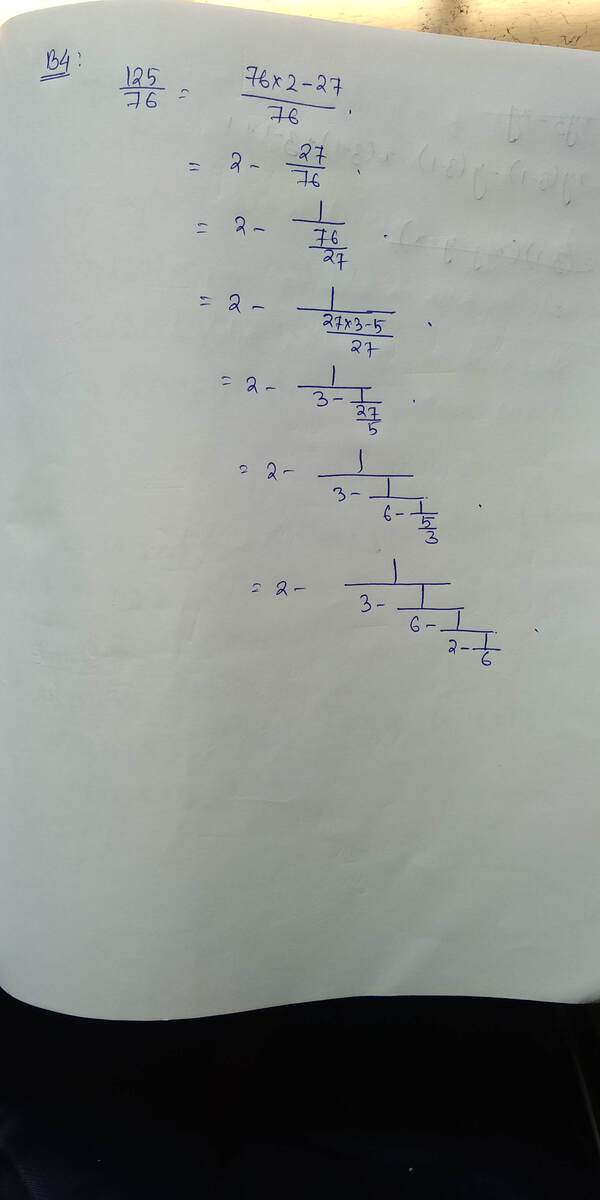 B4:
125/76 = (76×2-27)/76.
= 2 - 27/76.
= 2 - 1/(76/27).
= 2 - 1/((27×3-5)/27).
= 2 - 1/(3 - 1/(27/5)).
= 2 - 1/(3 - 1/(6 - 1/(5/3))).
= 2 - 1/(3 - 1/(6 - 1/(2 - 1/6))).